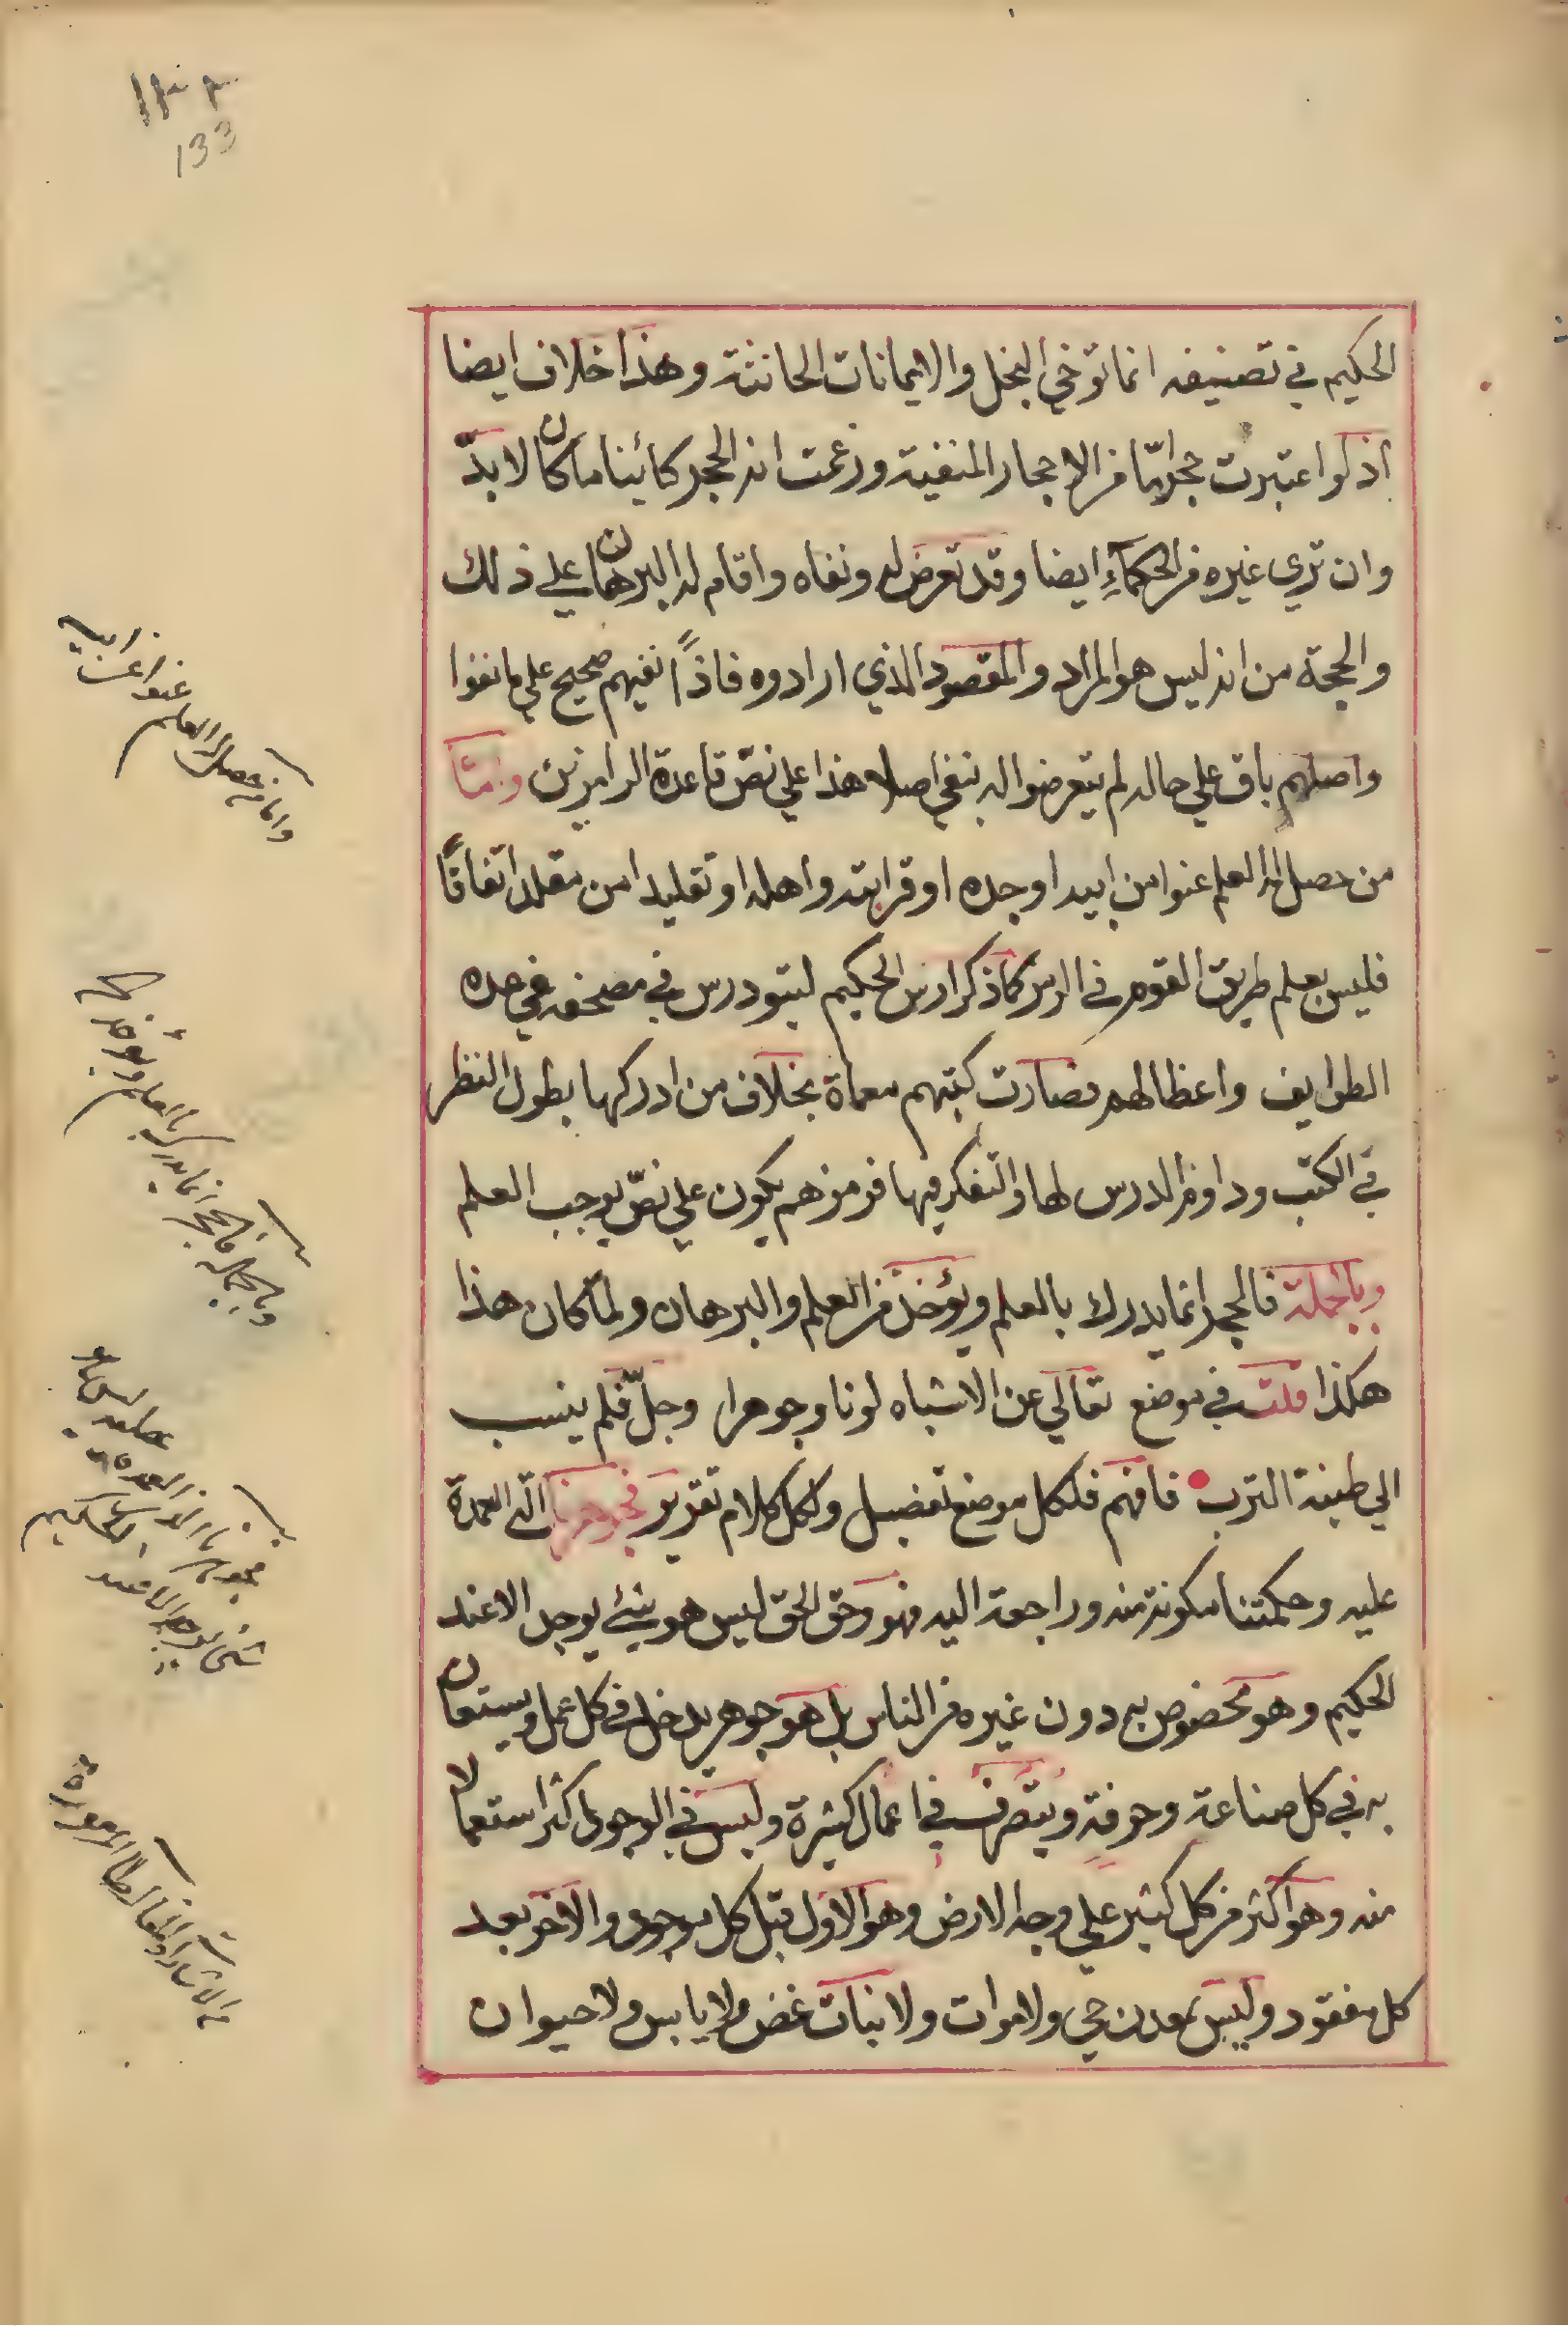 ١٣٢
133
الحكيم في تصنيفه انما توخي البخل والايمانات الحانثة وهذا خلاف ايضا
اذ لو اعتبرت حجرا مّا من الاحجار المنفية وزعمت انه الحجر كائنا ما كان لا بدّ
وان تري غيره من الحكمآء ايضا وقد تعرض له ونفاه واقام له البرهان علي ذلك
والحجة من انه ليس هو المراد والمقصود الذي ارادوه فاذاً نفيهم صحيح علي ما نفوا
واصلهم باق علي حاله لم يتعرضوا له بنفي اصلا هذا علي نصّ قاعدة الرامزين وامّا
من حصل له العلم عنوا من ابيه او جده او قرابته واهله او تقليدا من مقلد اتفاقًا
فليس يعلم طريق القوم في الرمز كما ذكر ارس الحكيم لتيودرس في مصحفه في حده
الطوايف واعظالهم فصارت كتبهم معماة بخلاف من ادركها بطول النظر
في الكتب وداوم الدرس لها والتفكر فيها فرمزهم يكون علي نصّ يوجب العلم
وبالجملة فالحجر انما يدرك بالعلم ويؤخذ من العلم والبرهان ولما كان هذا
هكذا قلت في موضع تعالي عن الاشباه لونا وجوهرا وجلّ فلم ينسب
الي طينة الترب فافهم فلكل موضع تفصيل ولكل كلام تقرير فجوهرنا الذي العمدة
عليه وحكمتنا مكونة منه وراجعة اليه فهو وحق الحق ليس هو بشئ يوجد الا عند
الحكيم وهو مخصوص به دون غيره من الناس بل هو جوهر يدخل في كل عمل ويستعان
به في كل صناعة وحرفة ويتصرف في اعمال كثيرة وليس في الوجود اكثر استعمالا
منه وهو اكثر من كل كثير علي وجه الارض وهو الاول قبل كل موجود والاخر بعد
كل مفقود وليس بمعدن حي ولا موات ولا نبات غض ولا يابس ولا حيوان
واما من حصل له العلم عنوا عن ابيه
وبالجملة فالحجر انما يدرك بالعلم ويؤخذ